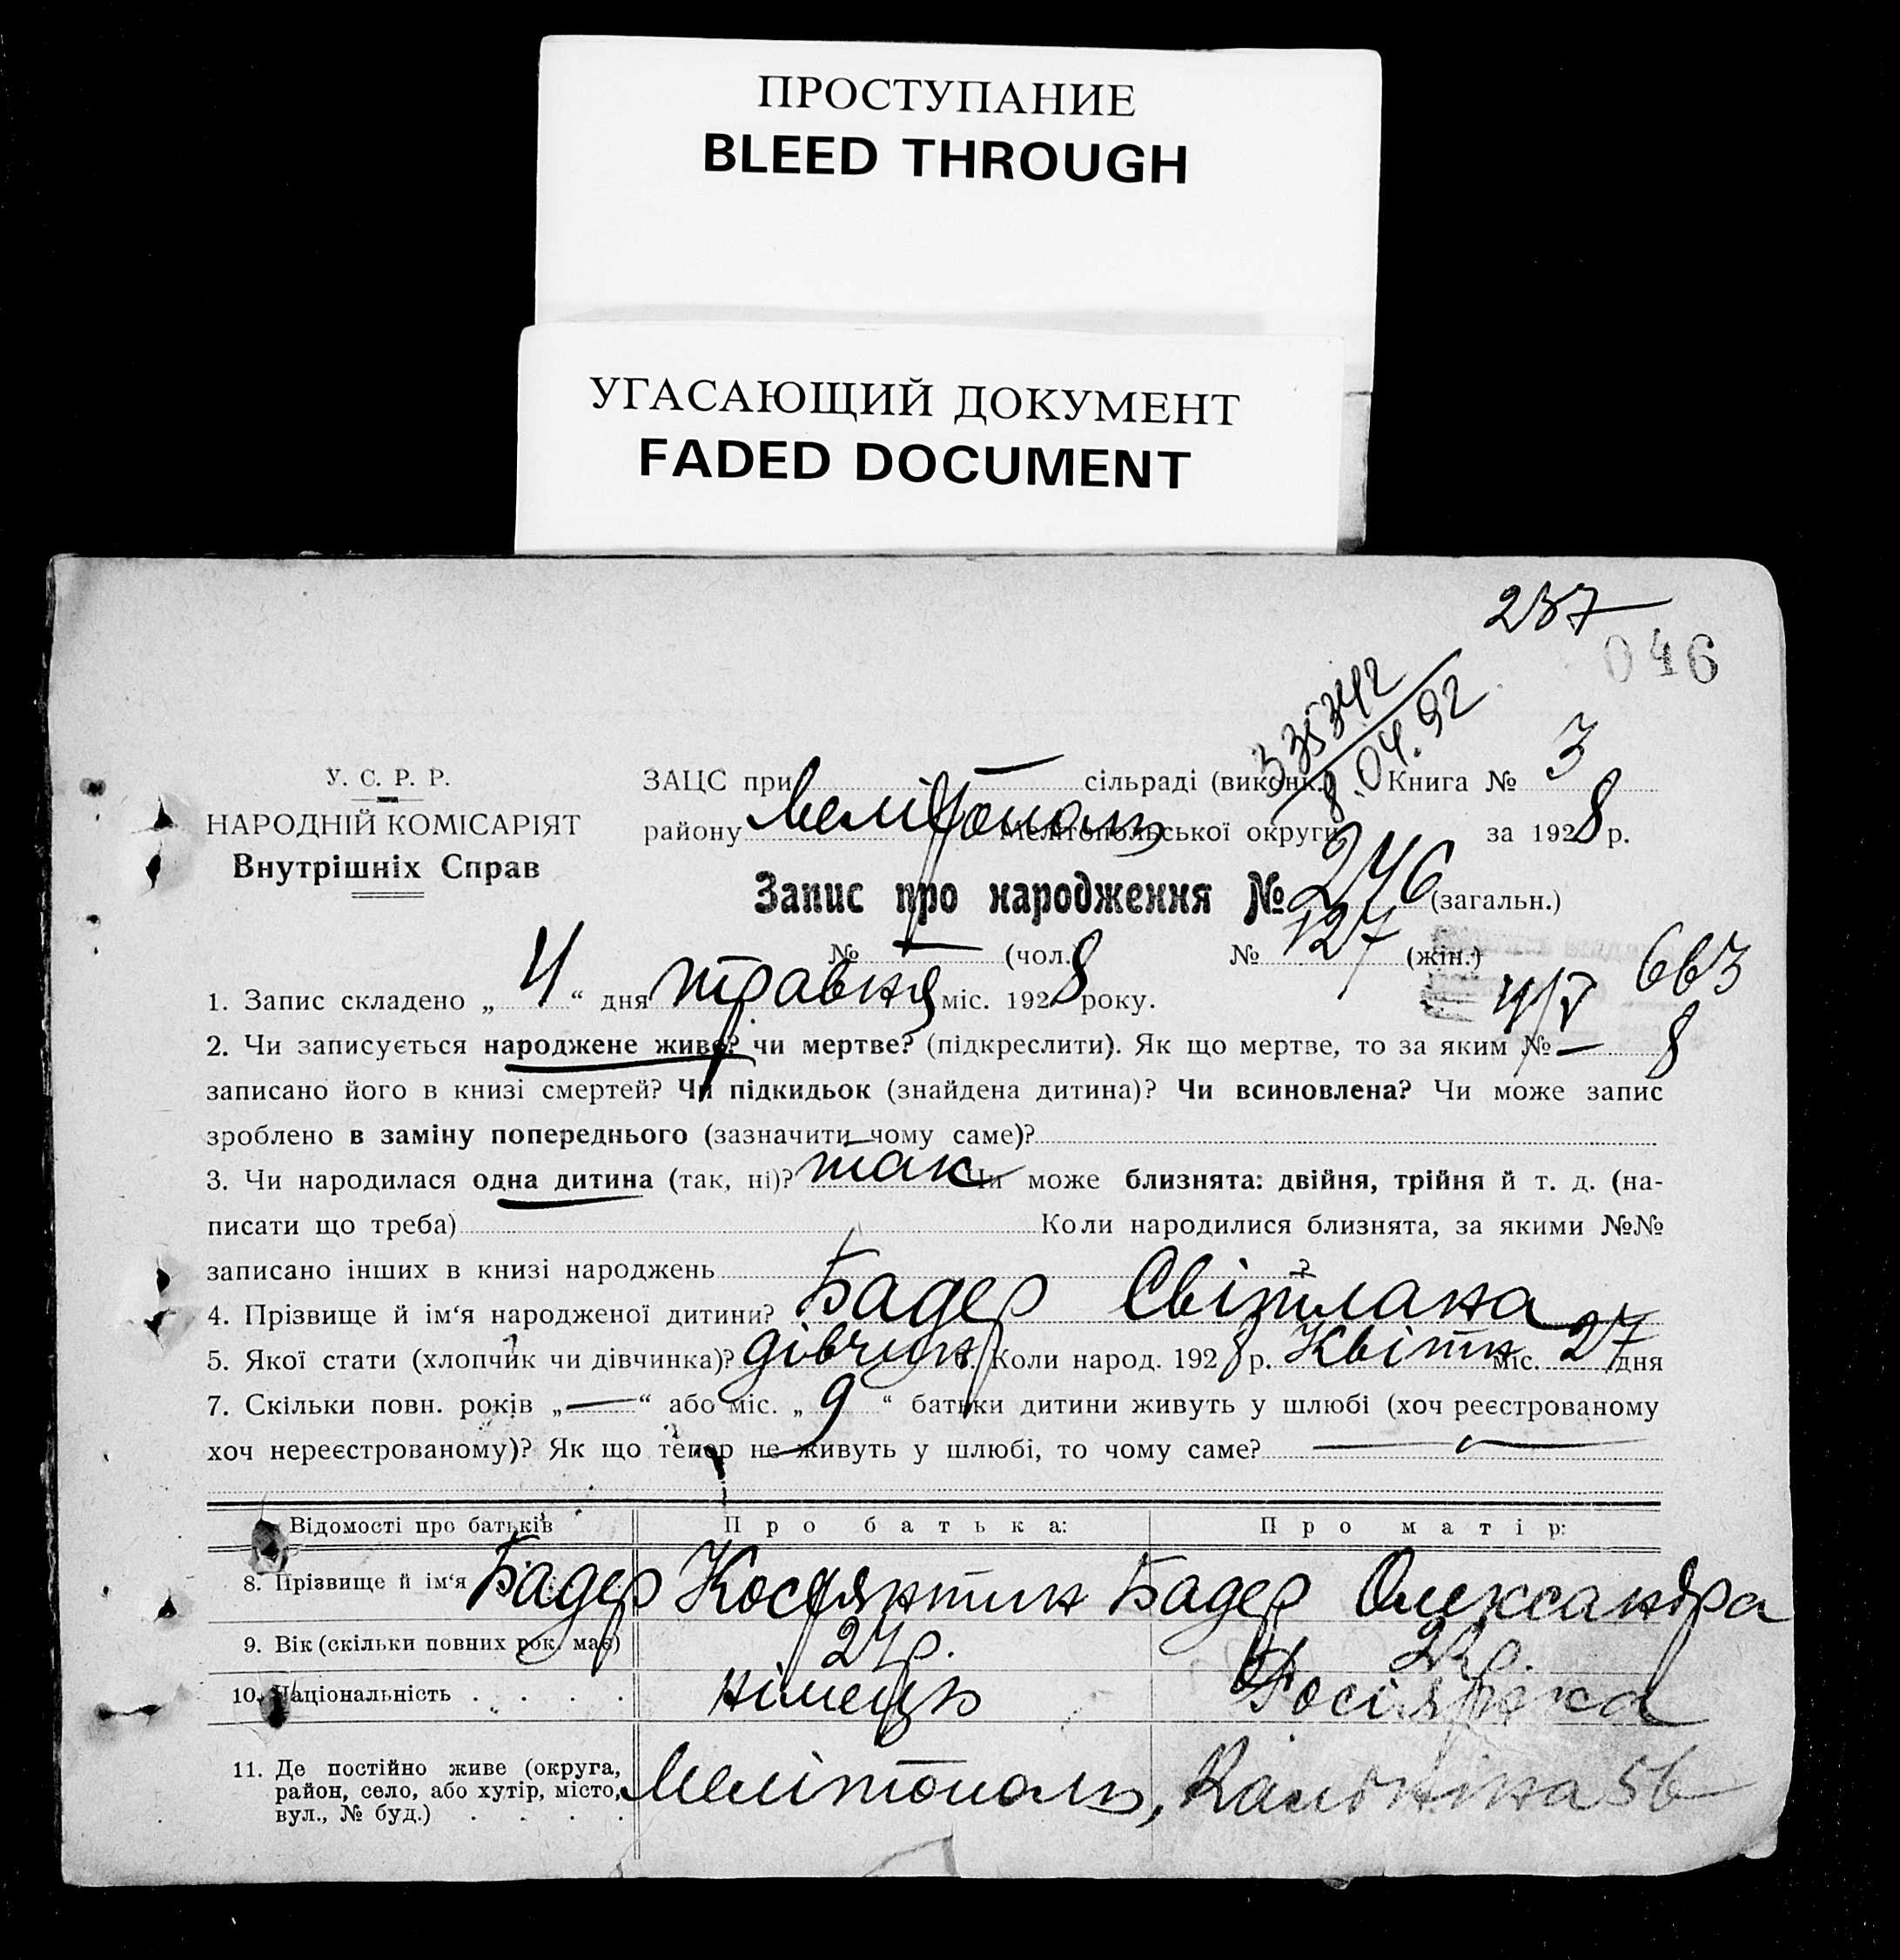 ПРОСТУПАНИЕ
BLEED THROUGH
УГАСАЮЩИЙ ДОКУМЕНТ
FADED DOCUMENT
257
046
335342
8.04.92
У. С. Р. Р.
НАРОДНІЙ КОМІСАРІЯТ
Внутрішніх Справ
ЗАЦС при — сільраді (виконк.) Книга № 3
району Мелітополь Мелітопольської округи за 1928 р.
Запис про народження № 246 (загальн.)
№ — (чол.) № 127 (жін.)
663
4/V
8
1. Запис складено „ 4 “ дня травня міс. 1928 року.
2. Чи записується народжене живе? чи мертве? (підкреслити). Як що мертве, то за яким № —
записано його в книзі смертей? Чи підкидьок (знайдена дитина)? Чи всиновлена? Чи може запис
зроблено в заміну попереднього (зазначити чому саме)?
3. Чи народилася одна дитина (так, ні)? так Чи може близнята: двійня, трійня й т. д. (на-
писати що треба) Коли народилися близнята, за якими №№
записано інших в книзі народжень ?
4. Прізвище й ім‘я народженої дитини? Бадер Світлана
5. Якої стати (хлопчик чи дівчинка)? дівчинк 6. Коли народ. 1928 р. Квітн міс. 27 дня
7. Скільки повн. років „ — “ або міс. „ 9 “ батьки дитини живуть у шлюбі (хоч реєстрованому
хоч нереєстрованому)? Як що тепер не живуть у шлюбі, то чому саме? —
Відомості про батьків Про батька: Про матір:
8. Прізвище й ім‘я Бадер Костянтин Бадер Олександра
9. Вік (скільки повних рок. має) 27 р. р.
10. Національність . . . . німець Росіянка
11. Де постійно живе (округа,
район, село, або хутір, місто,
вул., № буд.) . . . . Мелітополь, Калініна 56